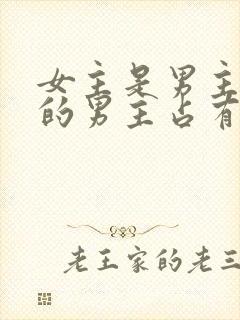 女主是男主
的男主占有
老王家的老三